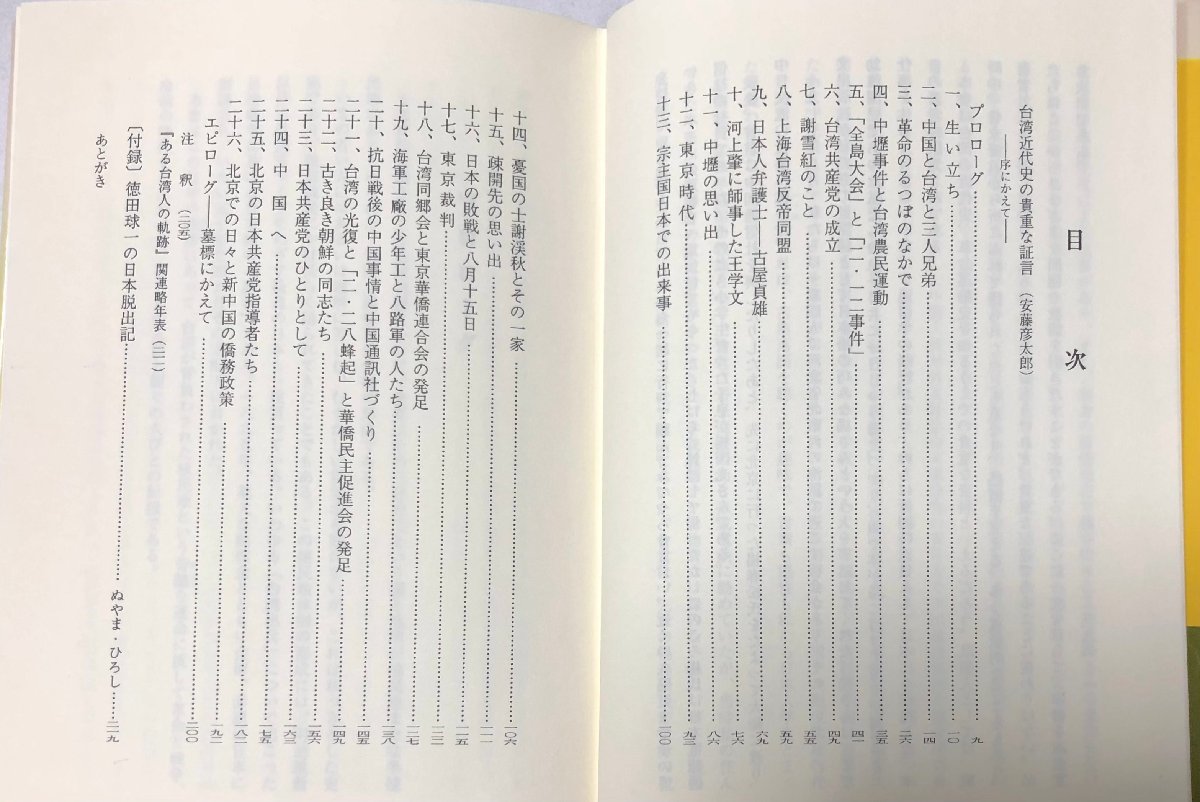 目次
台湾近代史の貴重な証言（安藤彦太郎）
――序にかえて――
プロローグ…………九
一、生い立ち…………一〇
二、中国と台湾と三人兄弟…………一四
三、革命のるつぼのなかで…………二六
四、中壢事件と台湾農民運動…………三五
五、「全島大会」と「二・一二事件」…………四一
六、台湾共産党の成立…………四九
七、謝雪紅のこと…………五五
八、上海台湾反帝同盟…………五九
九、日本人弁護士――古屋貞雄…………六九
十、河上肇に師事した王学文…………七六
十一、中壢の思い出…………八六
十二、東京時代…………九三
十三、宗主国日本での出来事…………一〇〇
十四、憂国の士謝渓秋とその一家…………一〇六
十五、疎開先の思い出…………一一一
十六、日本の敗戦と八月十五日…………一一五
十七、東京裁判…………一二二
十八、台湾同郷会と東京華僑連合会の発足…………一二七
十九、海軍工廠の少年工と八路軍の人たち…………一三八
二十、抗日戦後の中国事情と中国通訊社づくり…………一四五
二十一、台湾の光復と「二・二八蜂起」と華僑民主促進会の発足…………一四九
二十二、古き良き朝鮮の同志たち…………一五六
二十三、日本共産党のひとりとして…………一六三
二十四、中国へ…………
二十五、北京の日本共産党指導者たち…………一七五
二十六、北京での日々と新中国の僑務政策…………一八二
エピローグ――墓標にかえて…………一九二
注釈（二〇五）…………二〇〇
『ある台湾人の軌跡』関連略年表（二一一）
〔付録〕徳田球一の日本脱出記…………ぬやま・ひろし……二一九
あとがき